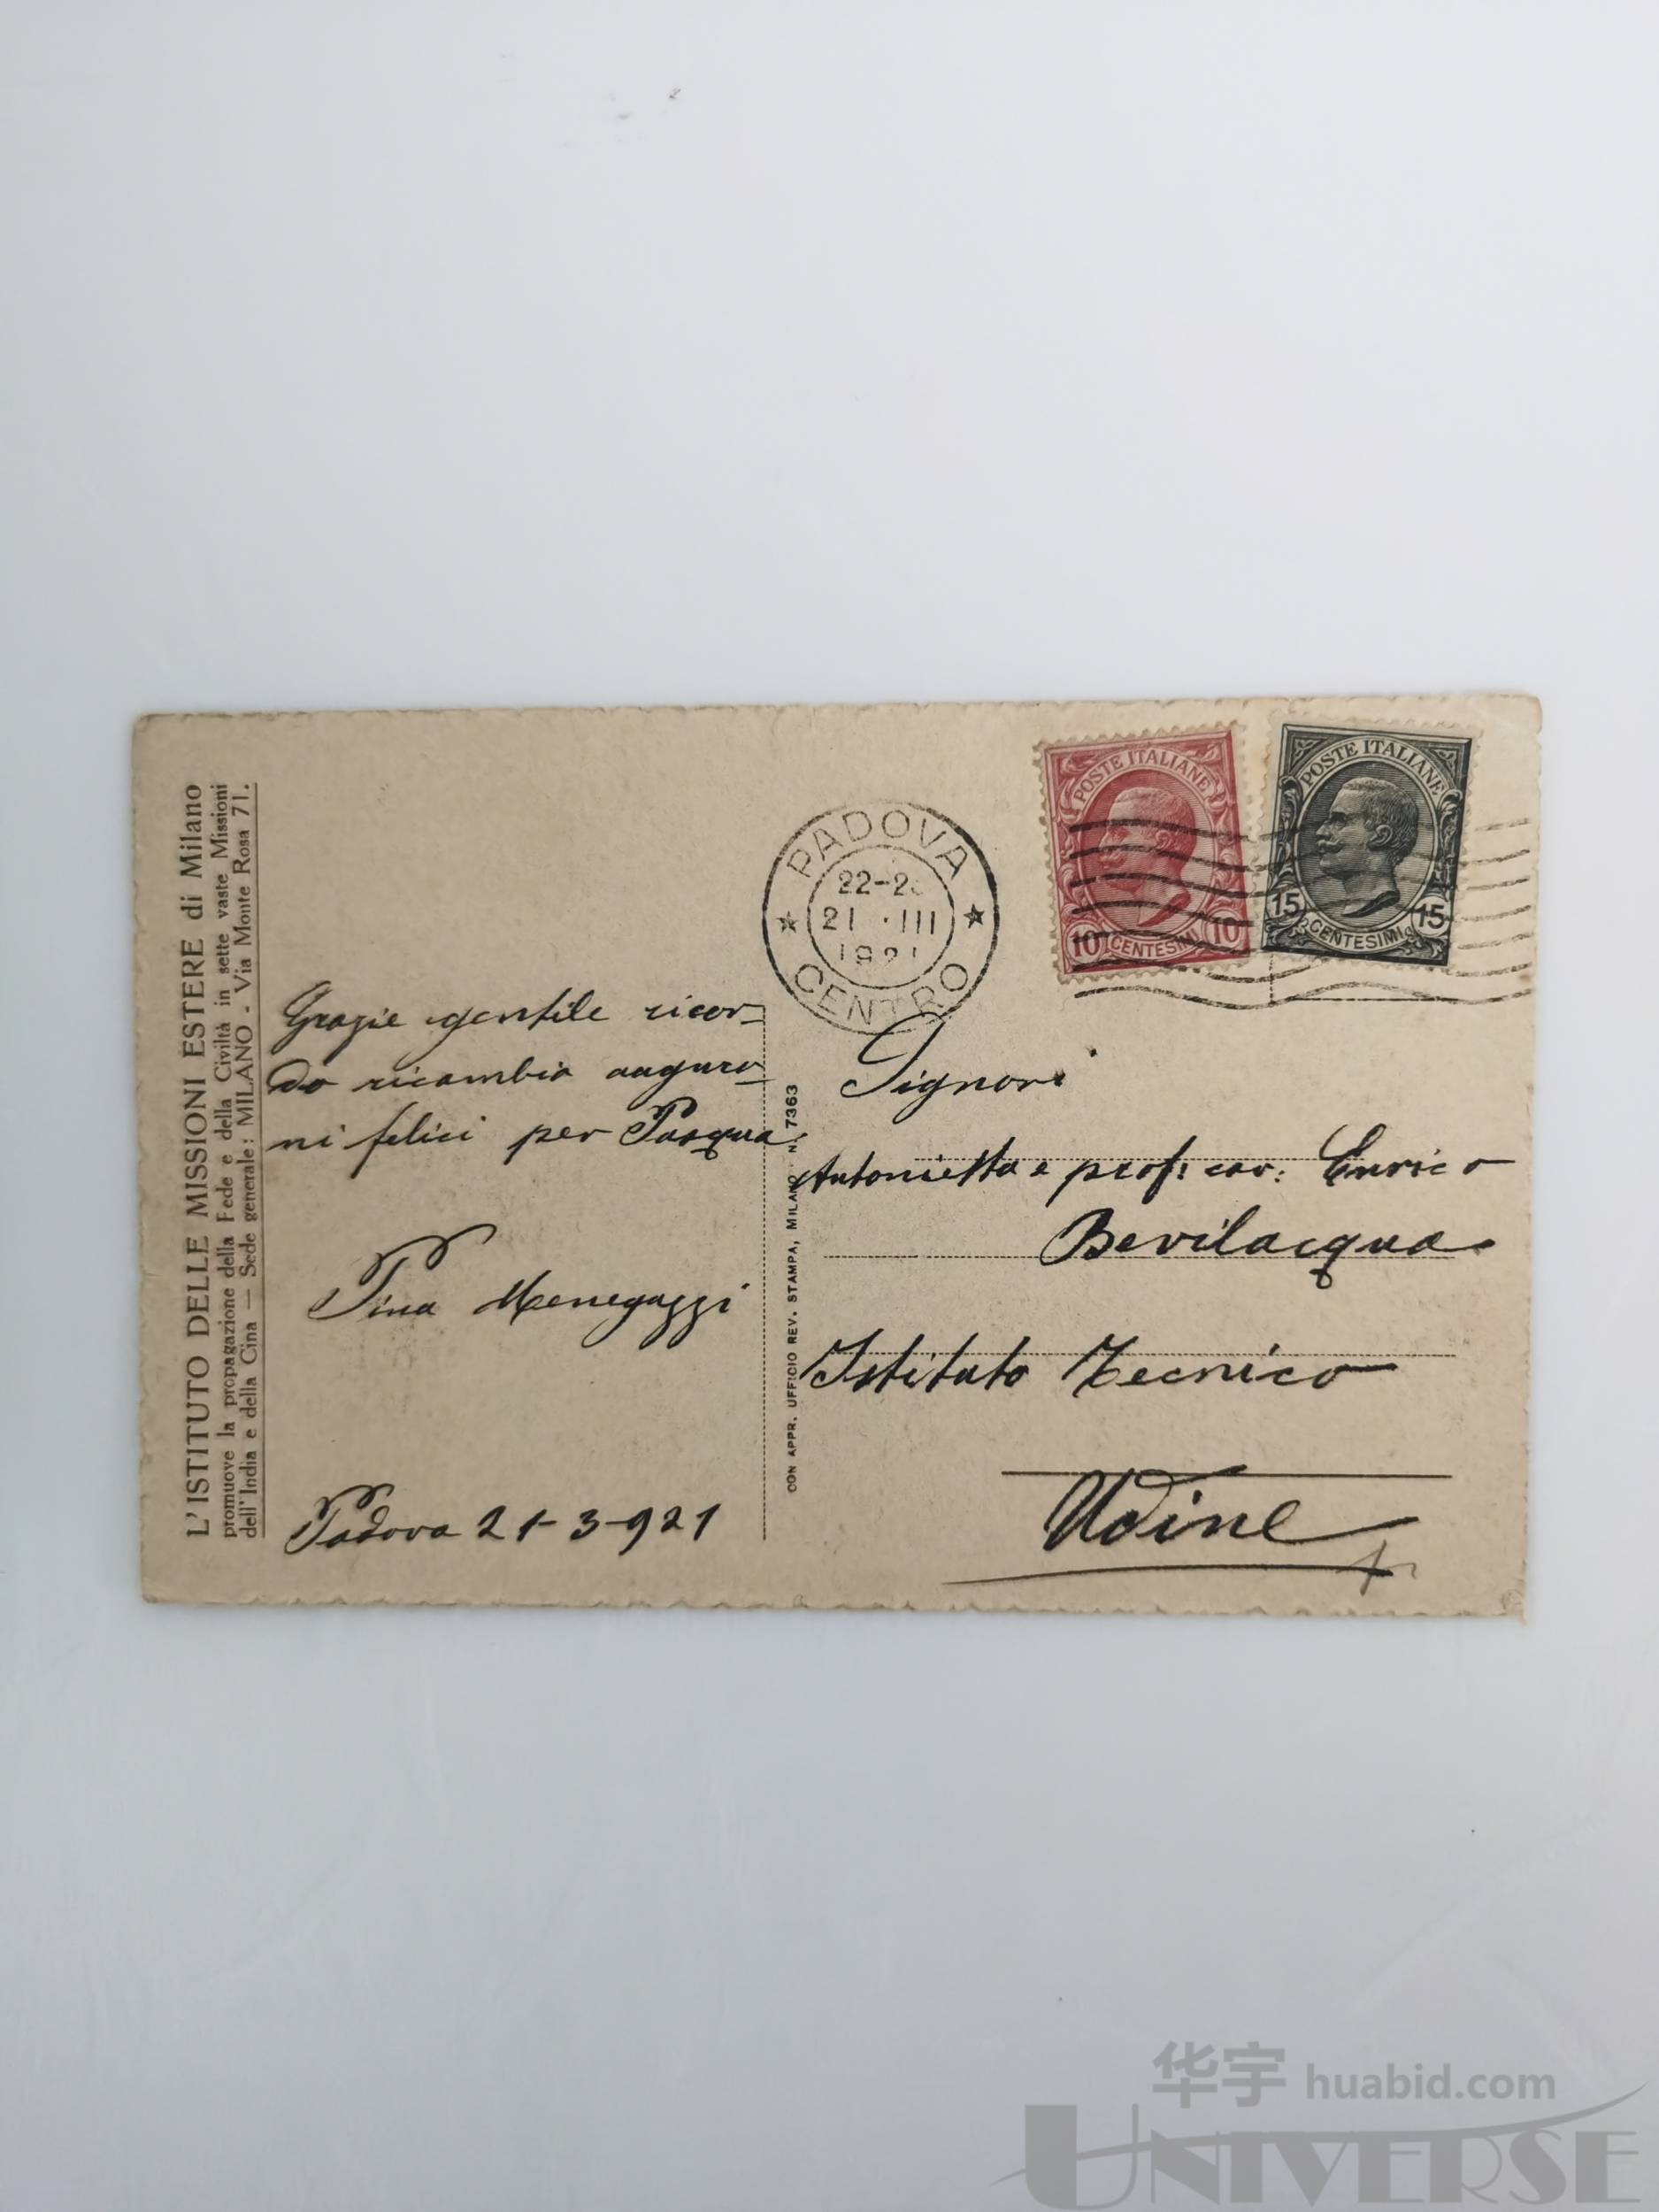 L'ISTITUTO DELLE MISSIONI ESTERE di Milano
promuove la propagazione della Fede e della Civiltà in sette vaste Missioni
dell'India e della Cina — Sede generale: MILANO - Via Monte Rosa 71.
Grazie gentile ricor-
do ricambio auguro-
ni felici per Pasqua.
Pina Menegazzi
Padova 21-3-921
CON APPR. UFFICIO REV. STAMPA, MILANO N. 7363
PADOVA
22-2
21 · III
1921
CENTRO
POSTE ITALIANE
10 CENTESIMI 10
POSTE ITALIANE
15 CENTESIMI 15
Signori
Antonietta e prof: cav: Enrico
Bevilacqua
Istituto Tecnico
Udine
华宇 huabid.com
UNIVERSE